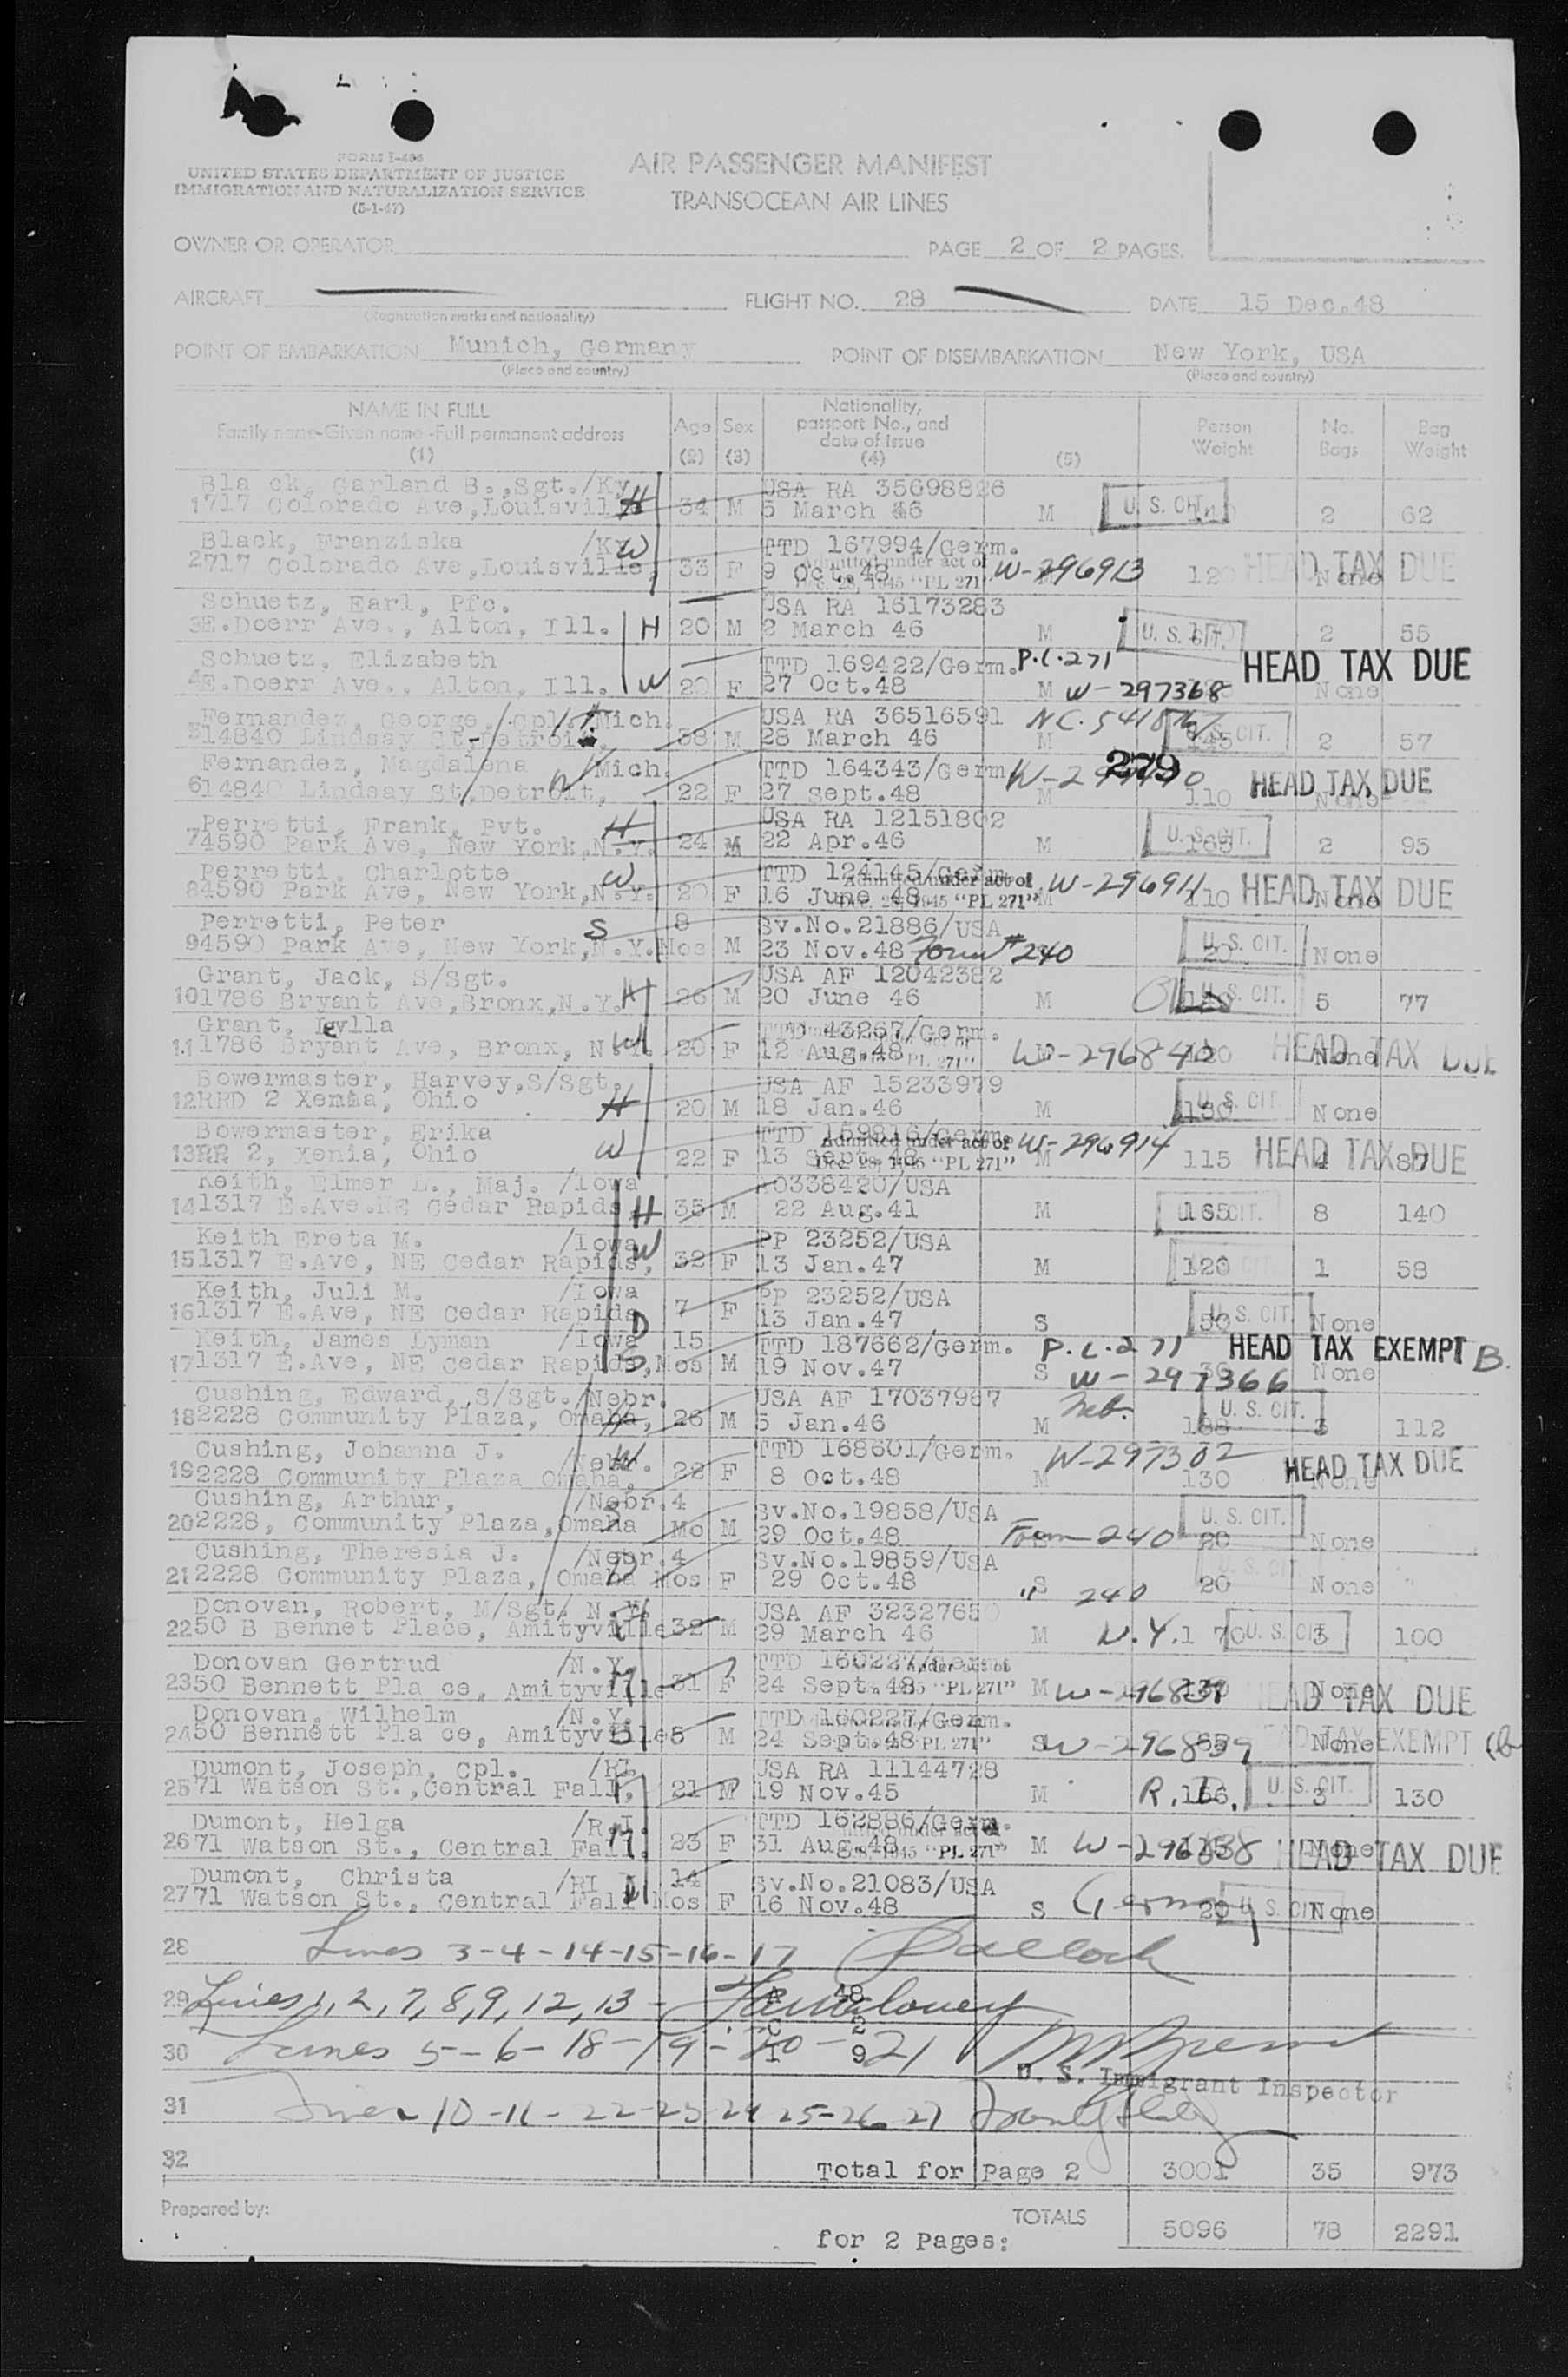 FORM I-466
UNITED STATES DEPARTMENT OF JUSTICE
IMMIGRATION AND NATURALIZATION SERVICE
(5-1-47)
AIR PASSENGER MANIFEST
TRANSOCEAN AIR LINES
OWNER OR OPERATOR
PAGE 2 OF 2 PAGES.
AIRCRAFT
(Registration marks and nationality)
FLIGHT NO. 28
DATE 15 Dec.48
POINT OF EMBARKATION Munich, Germany
(Place and country)
POINT OF DISEMBARKATION New York, USA
(Place and country)
NAME IN FULL
Family name-Given name-Full permanent address
(1)
Age
(2)
Sex
(3)
Nationality, passport No., and date of issue
(4)
(5)
Person Weight
No. Bags
Bag Weight
Bla ck, Garland B.,Sgt./Ky. USA RA 35698826
1 717 Colorado Ave,Louisville H 34 M 5 March 46 M U. S. CIT. 2 62
Black, Franziska /Ky W TTD 167994/Germ.
2 717 Colorado Ave,Louisville, 33 F 9 Oct.48 Admitted under act of Dec. 28, 1945 "PL 271" W-296913 120 None HEAD TAX DUE
Schuetz, Earl, Pfc. USA RA 16173283
3 E.Doerr Ave., Alton, Ill. H 20 M 2 March 46 M U. S. CIT. 2 55
Schuetz, Elizabeth TTD 169422/Germ. P.L.271 HEAD TAX DUE
4 E.Doerr Ave., Alton, Ill. W 20 F 27 Oct.48 M W-297368 None
Fernandez, George, Cpl. /Mich. USA RA 36516591
5 14840 Lindsay St,Detroit, 38 M 28 March 46 M 145 U. S. CIT. 2 57
Fernandez, Magdalena W /Mich. TTD 164343/Germ 279 HEAD TAX DUE
6 14840 Lindsay St,Detroit, 22 F 27 Sept.48 M 110 None
Perretti, Frank, Pvt. H USA RA 12151802
7 4590 Park Ave, New York,N.Y. 24 M 22 Apr.46 M 165 U. S. CIT. 2 95
Perretti, Charlotte W TTD 124145/Germ.
8 4590 Park Ave, New York,N.Y. 20 F 16 June 48 Admitted under act of Dec. 28, 1945 "PL 271" M W-296911 110 None HEAD TAX DUE
Perretti, Peter S 8 Bv.No.21886/USA
9 4590 Park Ave, New York,N.Y. Mos M 23 Nov.48 Form # 240 20 U. S. CIT. None
Grant, Jack, S/Sgt. USA AF 12042382
10 1786 Bryant Ave,Bronx,N.Y. H 26 M 20 June 46 M U. S. CIT. 5 77
Grant, Leylla TTD 43267/Germ.
11 1786 Bryant Ave, Bronx, N.Y. W 20 F 12 Aug.48 PL 271" W-296840 None HEAD TAX DUE
Bowermaster, Harvey,S/Sgt. USA AF 15233979
12 RRD 2 Xenia, Ohio H 20 M 18 Jan.46 M 180 U. S. CIT. None
Bowermaster, Erika W TTD 159816/Germ.
13 RR 2, Xenia, Ohio 22 F 13 Sept.48 Admitted under act of Dec. 28, 1945 "PL 271" M W-296914 115 4 87 HEAD TAX DUE
Keith, Elmer L., Maj. /Iowa O338420/USA
14 1317 E.Ave.NE Cedar Rapids, H 35 M 22 Aug.41 M 165 U. S. CIT. 8 140
Keith Ereta M. /Iowa W PP 23252/USA
15 1317 E.Ave, NE Cedar Rapids, 32 F 13 Jan.47 M 120 1 58
Keith, Juli M. /Iowa PP 23252/USA
16 1317 E.Ave, NE Cedar Rapids D 7 F 13 Jan.47 S 50 U. S. CIT. None
Keith, James Lyman /Iowa 15 TTD 187662/Germ. P.L.271 HEAD TAX EXEMPT B.
17 1317 E.Ave, NE Cedar Rapids, S Mos M 19 Nov.47 S W-297366 30 None
Cushing, Edward, S/Sgt./Nebr. USA AF 17037967 Neb.
18 2228 Community Plaza, Omaha, H 26 M 5 Jan.46 M 188 U. S. CIT. 3 112
Cushing, Johanna J. /Nebr. W TTD 168601/Germ. W-297302
19 2228 Community Plaza Omaha, 22 F 8 Oct.48 M 130 None HEAD TAX DUE
Cushing, Arthur, /Nebr. 4 Bv.No.19858/USA
20 2228, Community Plaza,Omaha Mo M 29 Oct.48 Form 240 20 U. S. CIT. None
Cushing, Theresia J. /Nebr. 4 Bv.No.19859/USA
21 2228 Community Plaza, Omaha Mos F 29 Oct.48 S " 240 20 None
Donovan, Robert, M/Sgt/ N.Y. USA AF 32327650
22 50 B Bennet Place, Amityville 32 M 29 March 46 M N.Y. 170 U. S. CIT. 3 100
Donovan Gertrud /N.Y. TTD 160227/Germ.
23 50 Bennett Pla ce, Amityville 31 F 24 Sept.48 under act of 1945 "PL 271" M W-296839 None HEAD TAX DUE
Donovan, Wilhelm /N.Y. TTD 160227/Germ.
24 50 Bennett Pla ce, Amityville 5 M 24 Sept.48 PL 271" S W-296839 None HEAD TAX EXEMPT
Dumont, Joseph, Cpl. /RI USA RA 11144728
25 71 Watson St.,Central Fall, 21 M 19 Nov.45 M R.I. 156 U. S. CIT. 3 130
Dumont, Helga /R.I. TTD 162886/Germ.
26 71 Watson St., Central Fall. 23 F 31 Aug.48 under act of 1945 "PL 271" M W-296838 None HEAD TAX DUE
Dumont, Christa /RI 14 Bv.No.21083/USA
27 71 Watson St., Central Fall Mos F 16 Nov.48 S Germany 20 U. S. CIT. None
28 Lines 3-4-14-15-16-17
29 Lines 1, 2, 7, 8, 9, 12, 13 -
30 Lines 5-6-18-19-20-21
U. S. Immigrant Inspector
31 Lines 10-11-22-23-24 25-26 27
32 Total for Page 2 3001 35 973
Prepared by:
TOTALS
for 2 Pages: 5096 78 2291